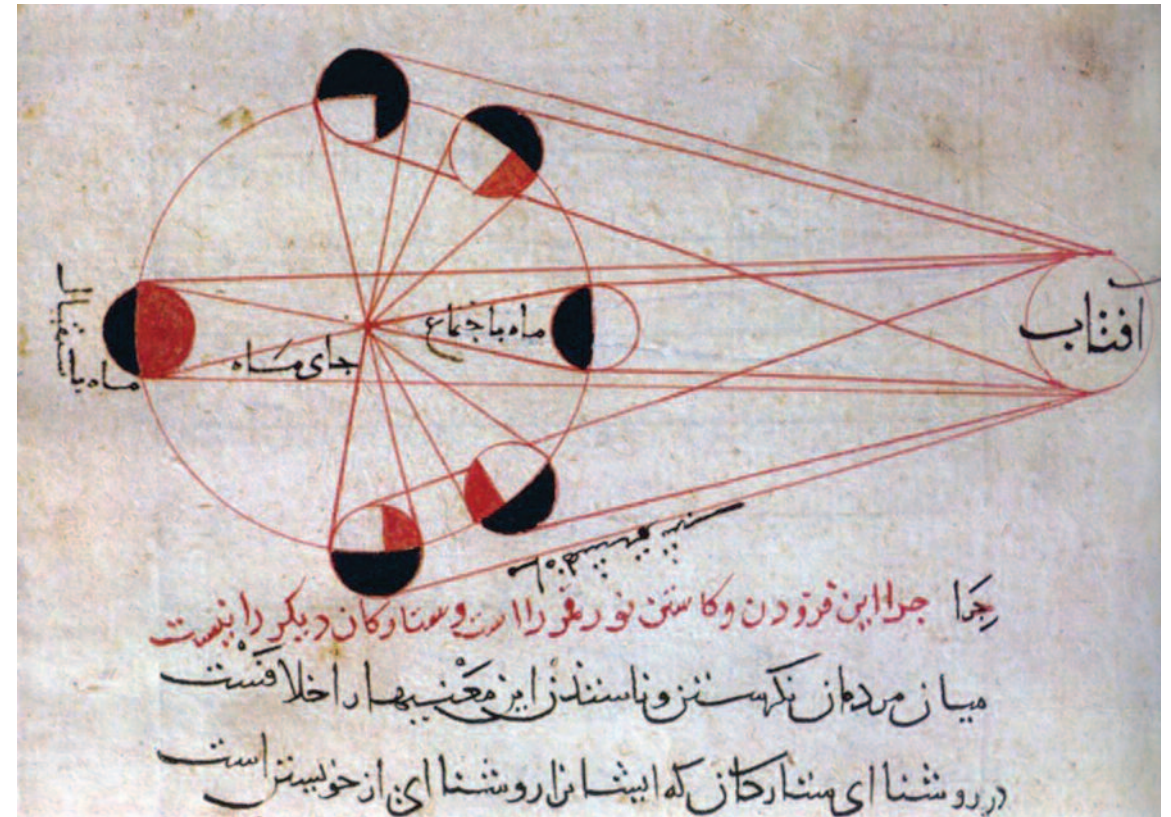 افتاب
ماه باجتماع
جای مَاه
ماه باستقبال
جرا این فزودن وکاستن نور قمر را است وستارکان دیکر را نیست
میان مردمان این معنیها را اخلافست
در روشنا ای ستارکان که ایشانرا روشنا ای از خویشتن است